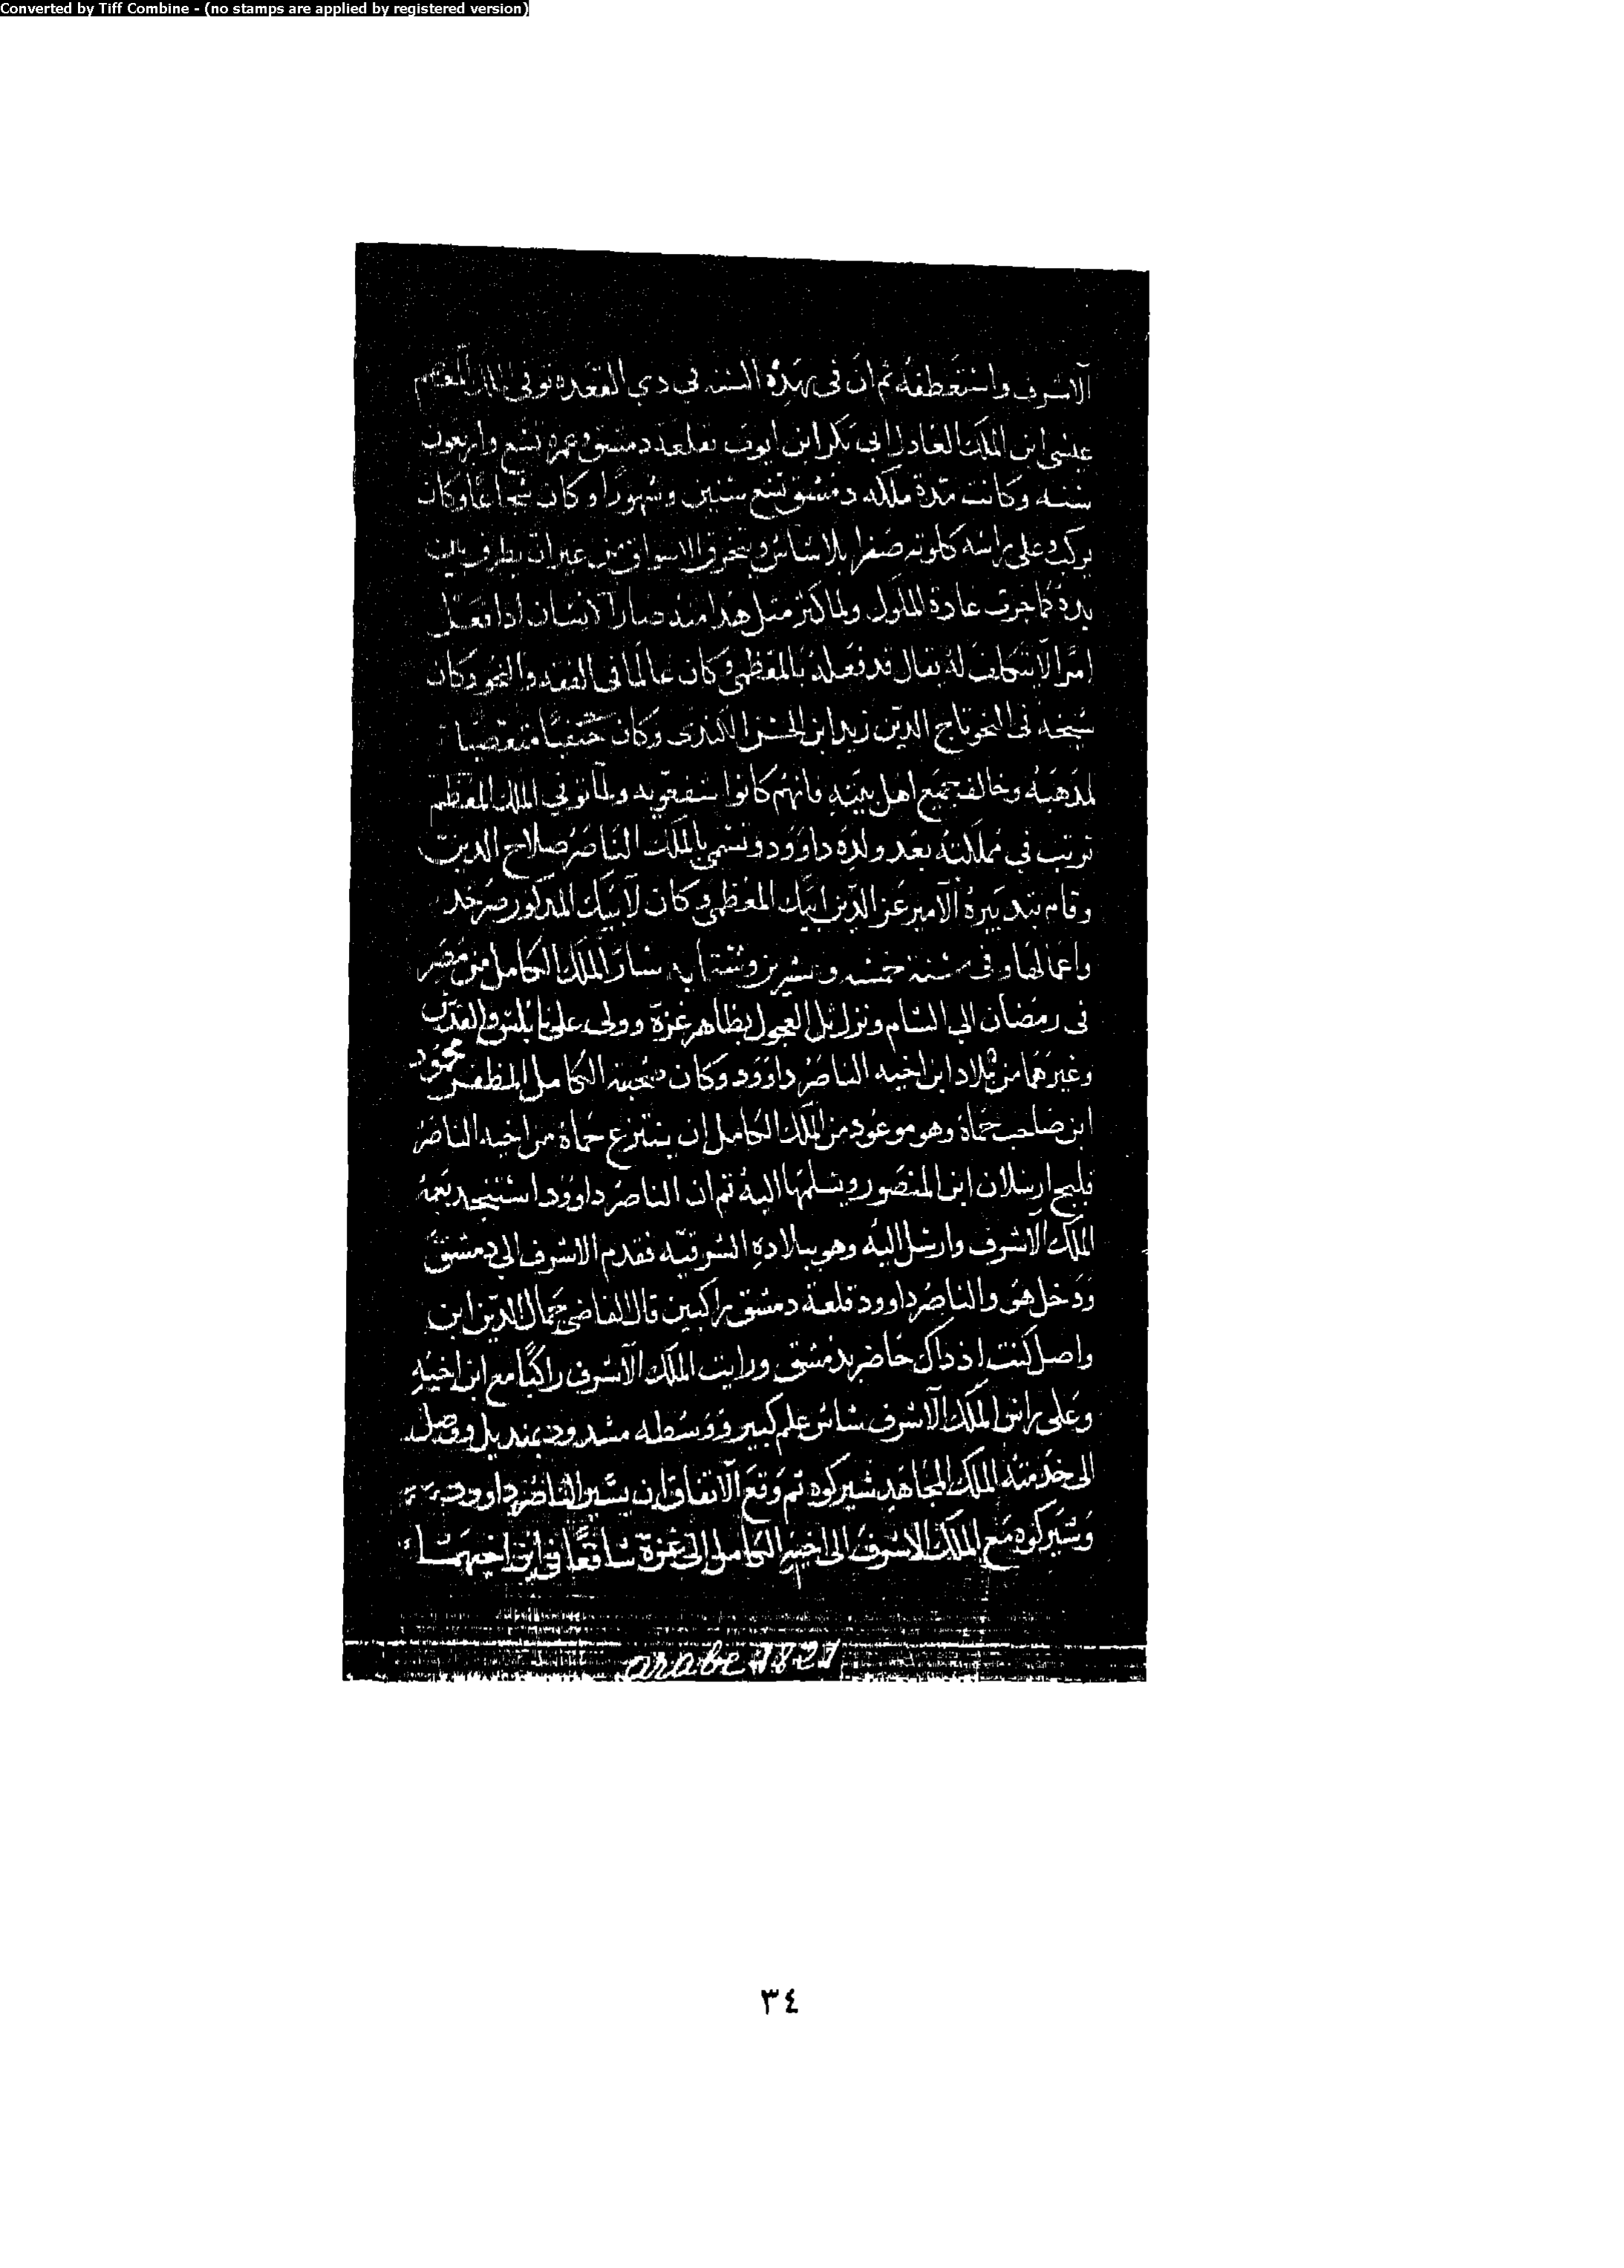 Converted by Tiff Combine - (no stamps are applied by registered version)
الاشرف واستعطفه ثم ان فى هذه السنه في دي القعده توفي الملك المعظم
عيسى ابن الملك العادل ابي بكر ابن ايوب بقلعة دمشق وعمره تسع واربعون
سنه وكانت مدة ملكه دمشق تسع سنين وشهورًا وكان شجاعًا وكان
يركب وعلى راسه كلوته صفرا بلا شاش ويتخرق الاسواق من غير ان يطرق بين
يده كما جرت عادة الملوك ولما كثر مثل هذا منه صار الانسان ادا فعل
امرًا لا يتكلف له يقال قد فعله بالمعظمي وكان عالمًا فى الفقه والنحو وكان
شيخه فى النحو تاج الدين زيد ابن الحسن الكندى وكان حنفيًا متعصبًا
لمذهبه وخالف جميع اهل بيته فانهم كانوا شفعويه ولما توفي الملك المعظم
ترتب في مملكته بعد ولده داوود وتسمى بالملك الناصر صلاح الدين
وقام بتدبيره الامير عز الدين ايبك المعظمي وكان لايبك المدكور صرخد
واعمالها وفى سنة خمسه وعشرين وستمايه سار الملك الكامل من مصر
فى رمضان الى الشام ونزل تل العجول بظاهر غزة وولى على نابلس والقدس
وغيرهما من بلاد ابن اخيه الناصر داوود وكان صحبته الكامل المظفر محمود
ابن صاحب حماة وهو موعود من الملك الكامل ان ينتزع حماة من اخيه الناصر
قليج ارسلان ابن المنصور ويسلمها اليه ثم ان الناصر داوود استنجد بعمه
الملك الاشرف وارسل اليه وهو ببلاده الشرقيه فقدم الاشرف الى دمشق
ودخل هو والناصر داوود قلعة دمشق راكبين قال القاضي جمال الدين ابن
واصل كنت اذ داك حاضر بدمشق ورايت الملك الاشرف راكبًا مع ابن اخيه
وعلى راس الملك الاشرف شاش علم كبير ووسطه مشدود بمنديل ووصل
الى خدمته الملك المجاهد شيركوه ثم وقع الاتفاق ان يسير الناصر داوود
وشيركوه مع الملك الاشرف الى اخيه الكامل الى غزة شافعًا في ابن اخيهما
arabe 1821
٣٤